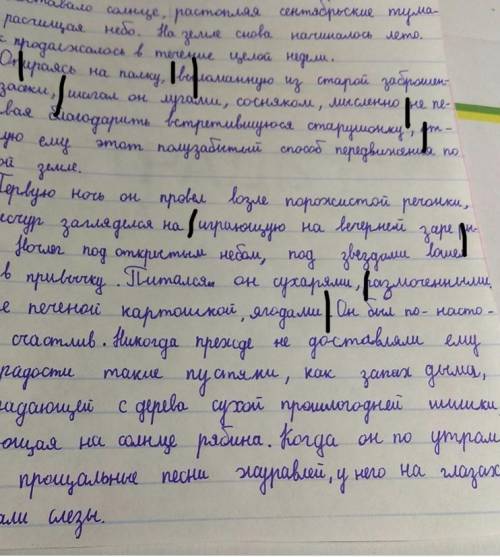 ставало солнце, растопляя сентябрьские тума-
расчищая небо. На земле снова начиналось лето.
к продолжалось в течение целой недели.
Опираясь на палку, выломанную из старой заброшен-
засеки, шагал он лугами, сосняком, мысленно не пе-
вая благодарить встретившуюся старушонку, от-
ую ему этот полузабытый способ передвижения по
ой земле.
Первую ночь он провел возле порожистой речонки,
исчур загляделся на играющую на вечерней заре ры-
Ночлег под открытым небом, под звездами вошел
в привычку. Питался он сухарями, размоченными
е печеной картошкой, ягодами. Он был по-насто-
счастлив. Никогда прежде не доставляли ему
радости такие пустяки, как запах дыма,
падающей с дерева сухой прошлогодней шишки
ющая на солнце рябина. Когда он по утрам
прощальные песни журавлей, у него на глазах
али слезы.